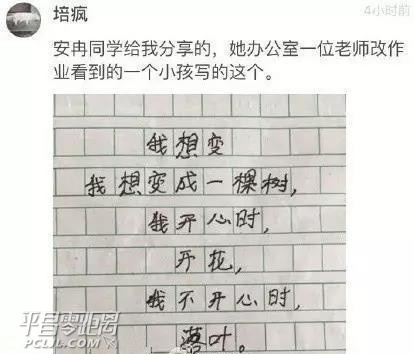 培疯
4小时前
安冉同学给我分享的，她办公室一位老师改作
业看到的一个小孩写的这个。
我想变
我想变成一棵树，
我开心时，
开花，
我不开心时，
落叶。
平昌零距离
PCLJL.COM